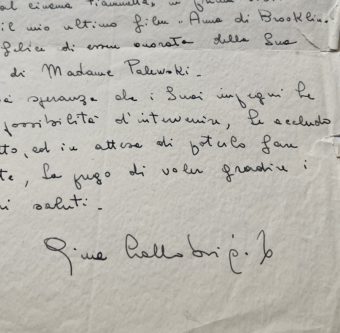 al cinema Fiammetta, in
il mio ultimo film "Anna di Brooklin.
felice di essere onorata della Sua
di Madame Palewski.
speranza che i Suoi impegni Le
possibilità d'intervenire, Le accludo
ed in attesa di poterlo fare
La prego di voler gradire i
saluti.
Gina Lollobrigida